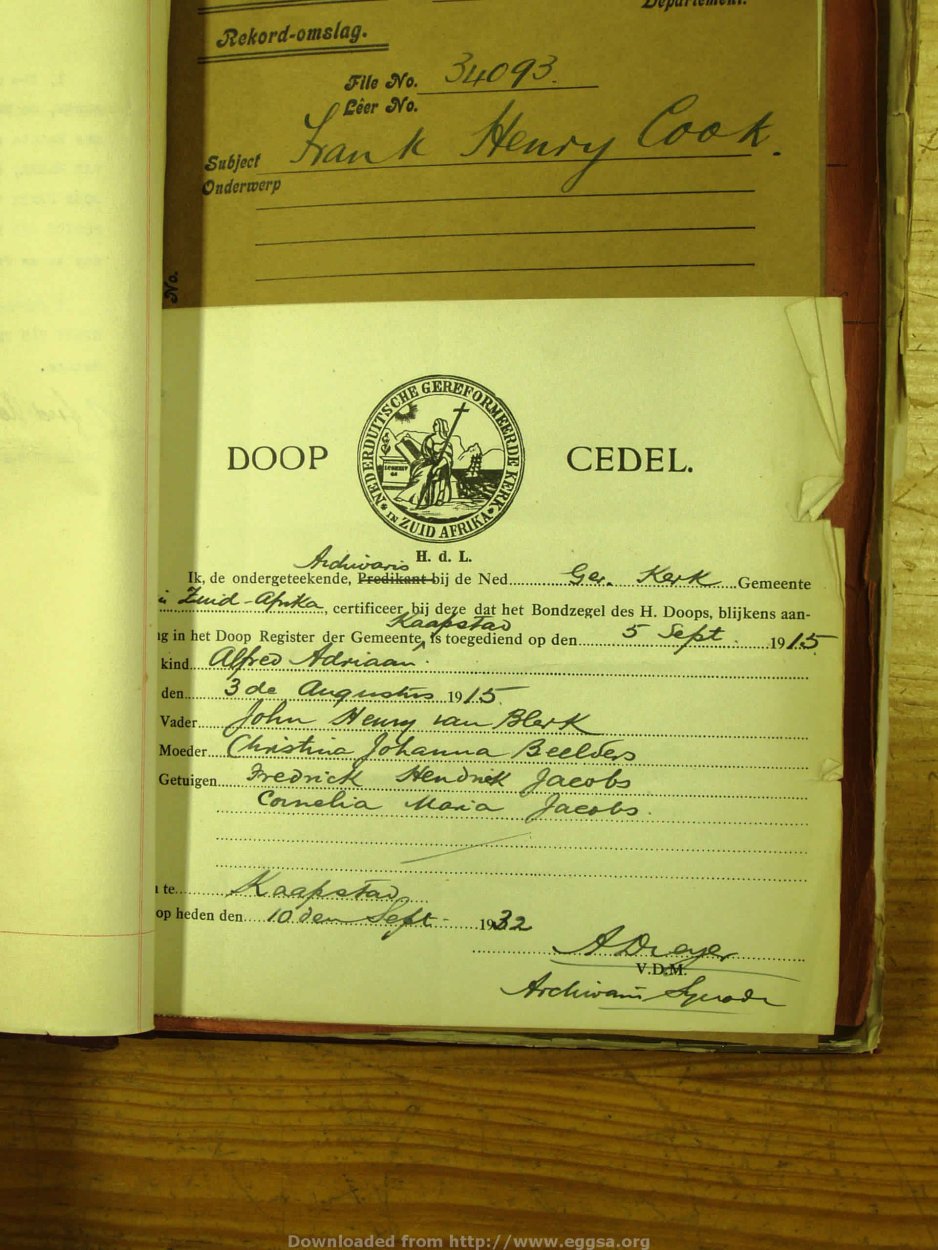 Departement.
Rekord-omslag.
File No. 34093.
Lêer No.
Subject Frank Henry Cook.
Onderwerp
No.
NEDERDUITSCHE GEREFORMEERDE KERK
IN ZUID AFRIKA
DOOP CEDEL.
H. d. L.
Archivaris
Ik, de ondergeteekende, Predikant bij de Ned. Ger. Kerk Gemeente
Zuid-Afrika, certificeer bij deze dat het Bondzegel des H. Doops, blijkens aan-
Kaapstad
ng in het Doop Register der Gemeente, is toegediend op den 5 Sept. 1915
kind Alfred Adriaan.
den 3 de Augustus 1915.
Vader John Henry van Blerk
Moeder Christina Johanna Beelders
Getuigen Fredrick Hendrik Jacobs
Cornelia Maria Jacobs.
te Kaapstad
op heden den 10 den Sept. 1932
A Dreyer
V.D.M.
Archivaris Synode
Downloaded from http://www.eggsa.org